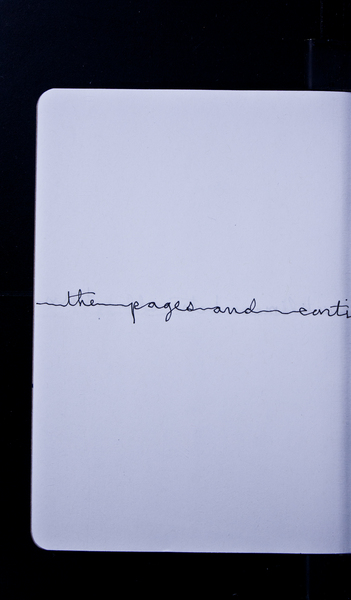 the pages and conti